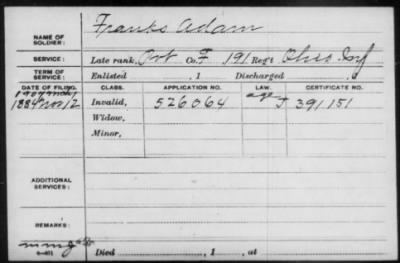 NAME OF SOLDIER: Franks Adam
SERVICE: Late rank, Pvt Co. F 191 Reg't Ohio Inf
TERM OF SERVICE: Enlisted , 1 Discharged
DATE OF FILING. CLASS. APPLICATION NO. LAW. CERTIFICATE NO.
1884 Nov 12 Invalid, 526064 age J 391151
Widow,
Minor,
ADDITIONAL SERVICES:
REMARKS:
Died , 1 , at